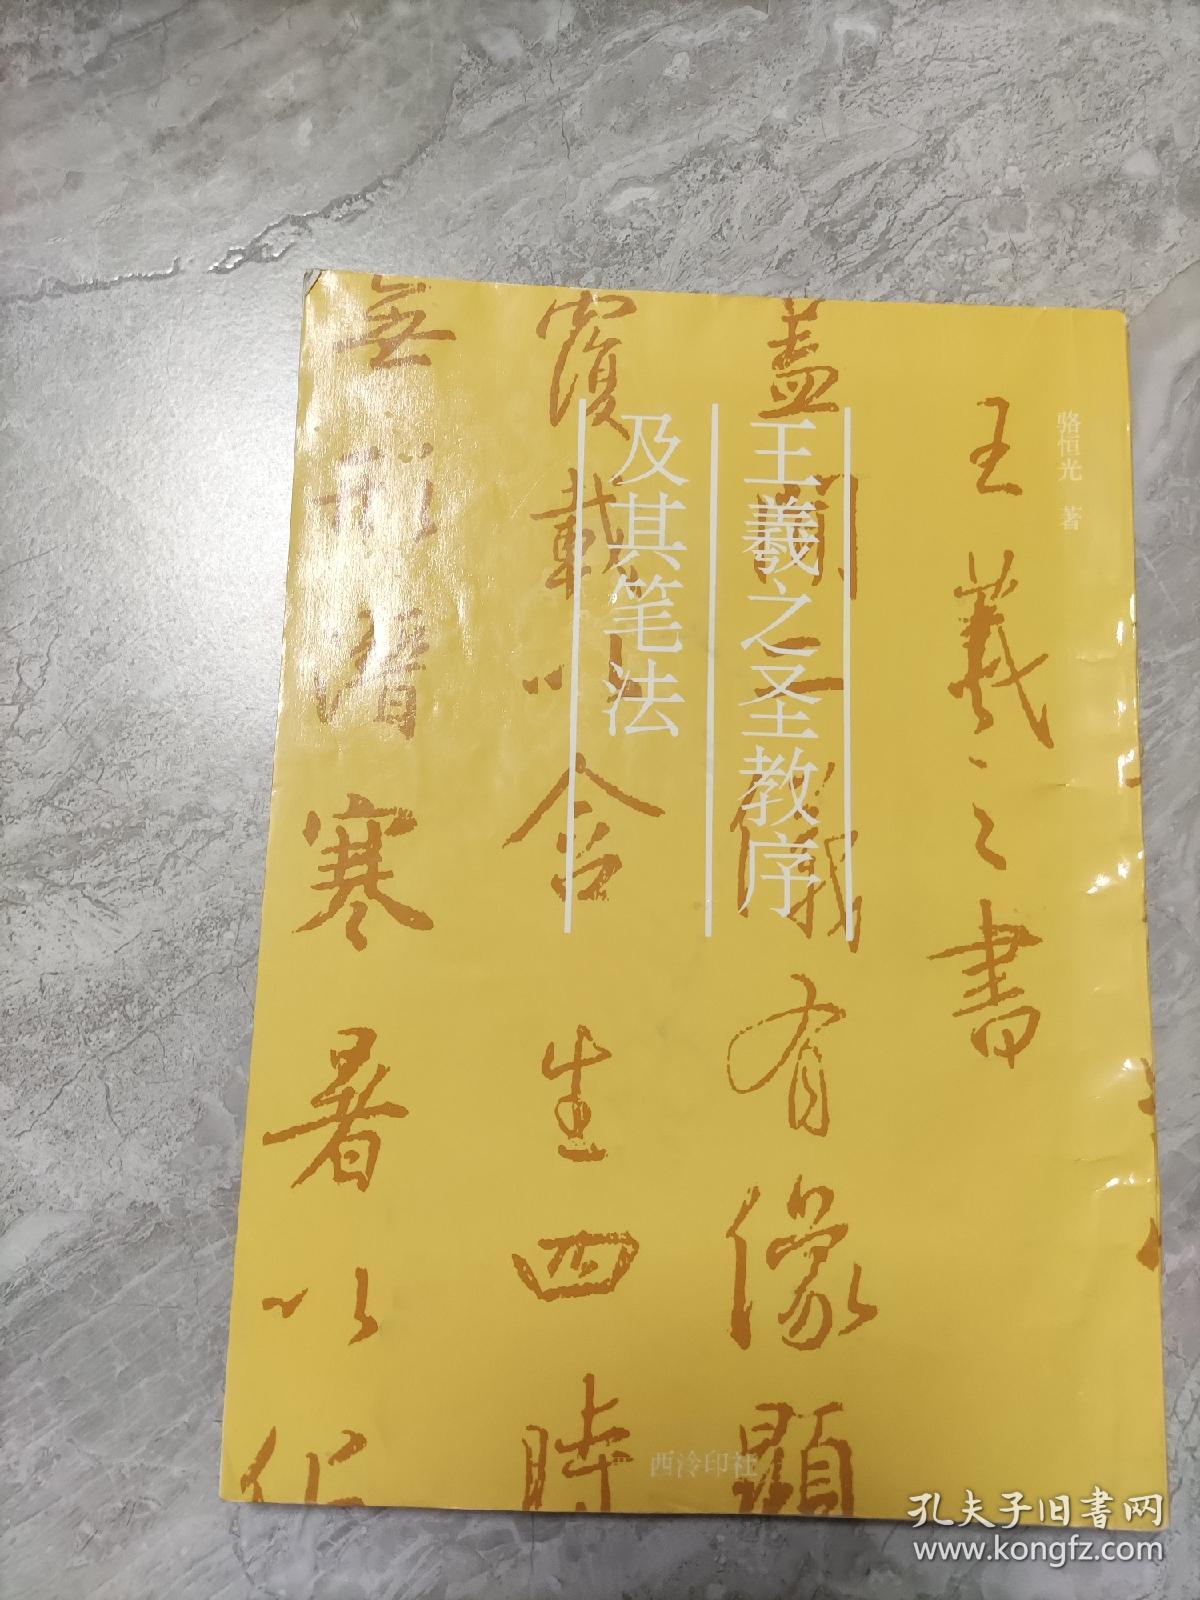 骆恒光 著
王羲之圣教序
及其笔法
王羲之書
蓋聞二儀有像顯
覆載以含生四時
無形潛寒暑以化
西泠印社
孔夫子旧书网
www.kongfz.com